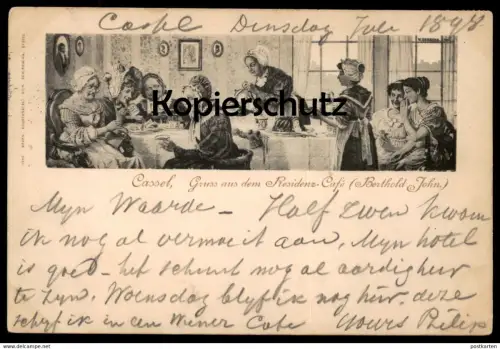 Cassel Dinsdag Juli 1898
Kopierschutz
Cassel, Gruss aus dem Residenz-Café (Berthold John.)
Myn Waarde - Half zwen kwam
ik nog al vermoeit aan, Myn hotel
is goed - het schynt nog al aardig hier
te zyn. Woensdag blyf ik nog hier, deze
schryf ik in een Wiener Cafe Yours Philip